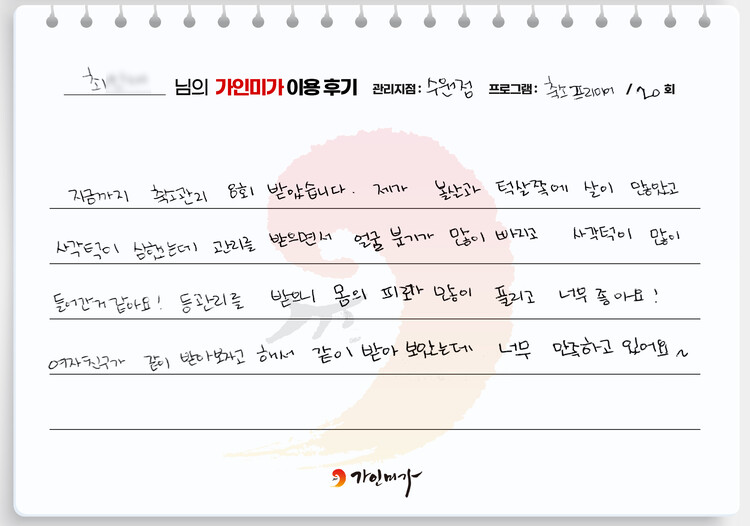 최 님의 가인미가 이용 후기 관리지점 : 수원점 프로그램 : 축소프리미어 / 20 회
지금까지 축소관리 8회 받았습니다. 제가 볼살과 턱살쪽에 살이 많았고
사각턱이 심했는데 관리를 받으면서 얼굴 붓기가 많이 빠지고 사각턱이 많이
들어간거 같아요! 등관리를 받으니 몸의 피로가 많이 풀리고 너무 좋아요!
여자친구가 같이 받아보자고 해서 같이 받아 보았는데 너무 만족하고 있어요~
가인미가